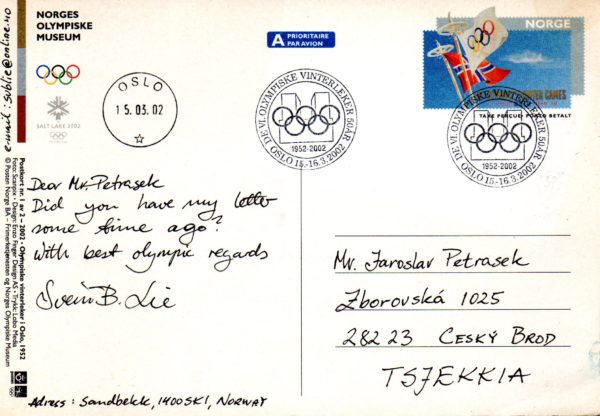 NORGES
OLYMPISKE
MUSEUM
SALT LAKE 2002
e-mail: svblie@online.no
Postkort nr. 1 av 2 • 2002 • Olympiske vinterleker i Oslo, 1952
© Posten Norge BA – Frimerketjenesten og Norges Olympiske Museum
A PRIORITAIRE
PAR AVION
OSLO
15.03.02
DE VI. OLYMPISKE VINTERLEKER 50 ÅR
1952-2002
OSLO 15.-16.3.2002
NORGE
TAXE PERCUE / PORTO BETALT
DE VI. OLYMPISKE VINTERLEKER 50 ÅR
1952-2002
OSLO 15.-16.3.2002
Dear Mr. Petrasek
Did you have my letter
some time ago?
With best olympic regards
Svein B. Lie
Adress: Sandbekk, 1400 SKI, NORWAY
Mr. Jaroslav Petrasek
Zborovská 1025
282 23 CESKÝ BROD
TSJEKKIA